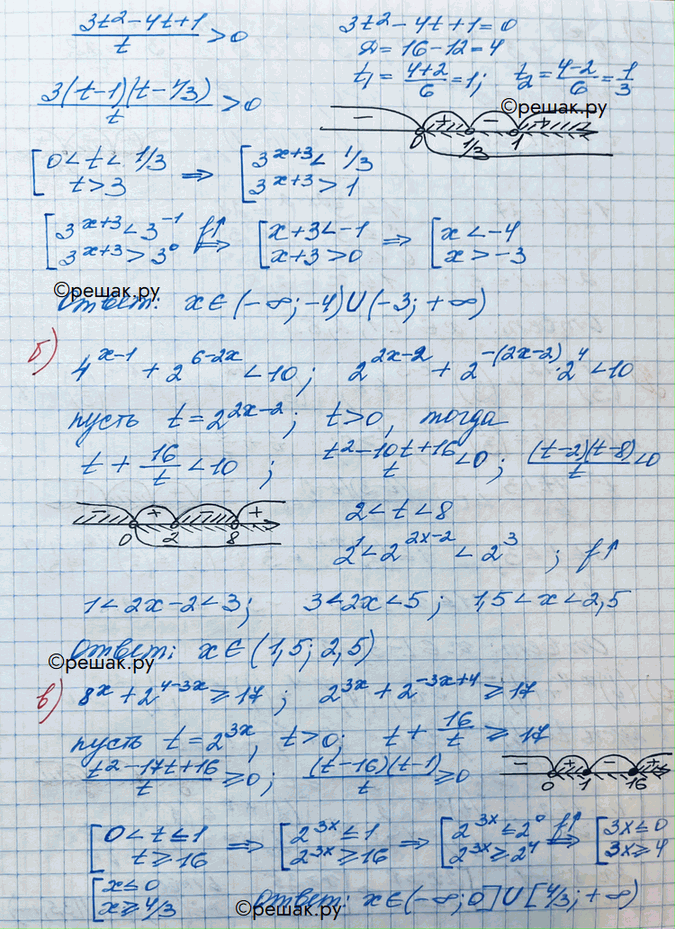 (3t²-4t+1)/t > 0
3t²-4t+1=0
D=16-12=4
t₁=(4+2)/6=1; t₂=(4-2)/6=1/3
3(t-1)(t-1/3)/t > 0
©решак.ру
- + - +
0 1/3 1
[0<t<1/3 ⇒ [3^(x+3)<1/3
t>3 3^(x+3)>1
[3^(x+3)<3^(-1) f↑ ⇒ [x+3<-1 ⇒ [x<-4
3^(x+3)>3^0 x+3>0 x>-3
©решак.ру
Ответ: x∈(-∞;-4)∪(-3;+∞)
б)
4^(x-1)+2^(6-2x)<10; 2^(2x-2)+2^(-(2x-2))·2^4<10
пусть t=2^(2x-2); t>0, тогда
t+16/t<10; (t²-10t+16)/t<0; (t-2)(t-8)/t<0
- + - +
0 2 8
2<t<8
2^1<2^(2x-2)<2^3; f↑
1<2x-2<3; 3<2x<5; 1,5<x<2,5
Ответ: x∈(1,5; 2,5)
©решак.ру
в) 8^x+2^(4-3x)≥17; 2^(3x)+2^(-3x+4)≥17
пусть t=2^(3x), t>0; t+16/t≥17
(t²-17t+16)/t≥0; (t-16)(t-1)/t≥0
- + - +
0 1 16
[0<t≤1 ⇒ [2^(3x)≤1 ⇒ [2^(3x)≤2^0 f↑ ⇒ [3x≤0
t≥16 2^(3x)≥16 2^(3x)≥2^4 3x≥4
[x≤0
x≥4/3 Ответ: x∈(-∞;0]∪[4/3;+∞)
©решак.ру